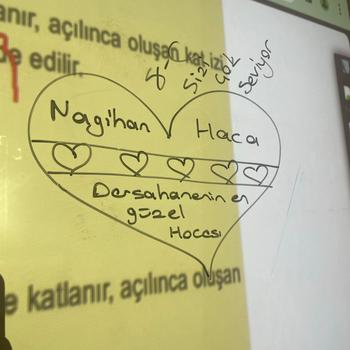 anır, açılınca oluşan kat izi
de edilir.
Sizi
çok
seviyor
Nagihan Haca
Dersahanenin en
güzel
Hocası
e katlanır, açılınca oluşan